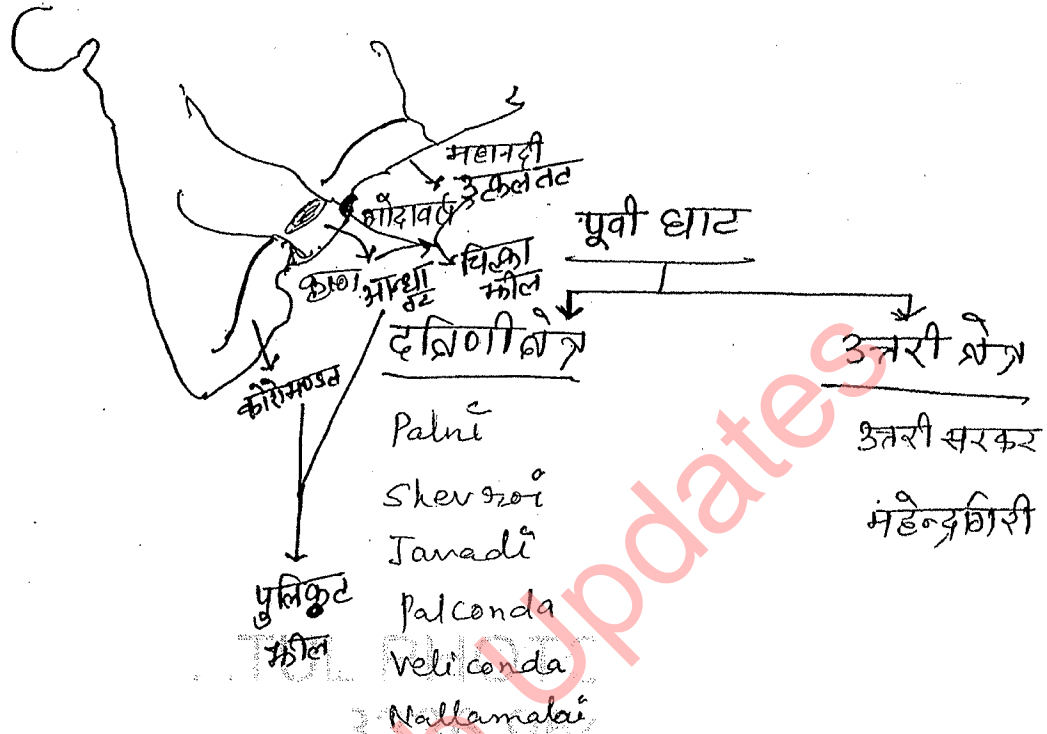 महानदी
उत्कल तट
गोदावरी
चिल्का
झील
कृष्णा
आन्ध्रा
तट
कोरोमण्डल
पुलिकट
झील
पूर्वी घाट
दक्षिणी क्षेत्र
Palni
Shevroi
Javadi
Palconda
Veliconda
Nallamalai
उत्तरी क्षेत्र
उत्तरी सरकार
महेन्द्रगिरी
Updates